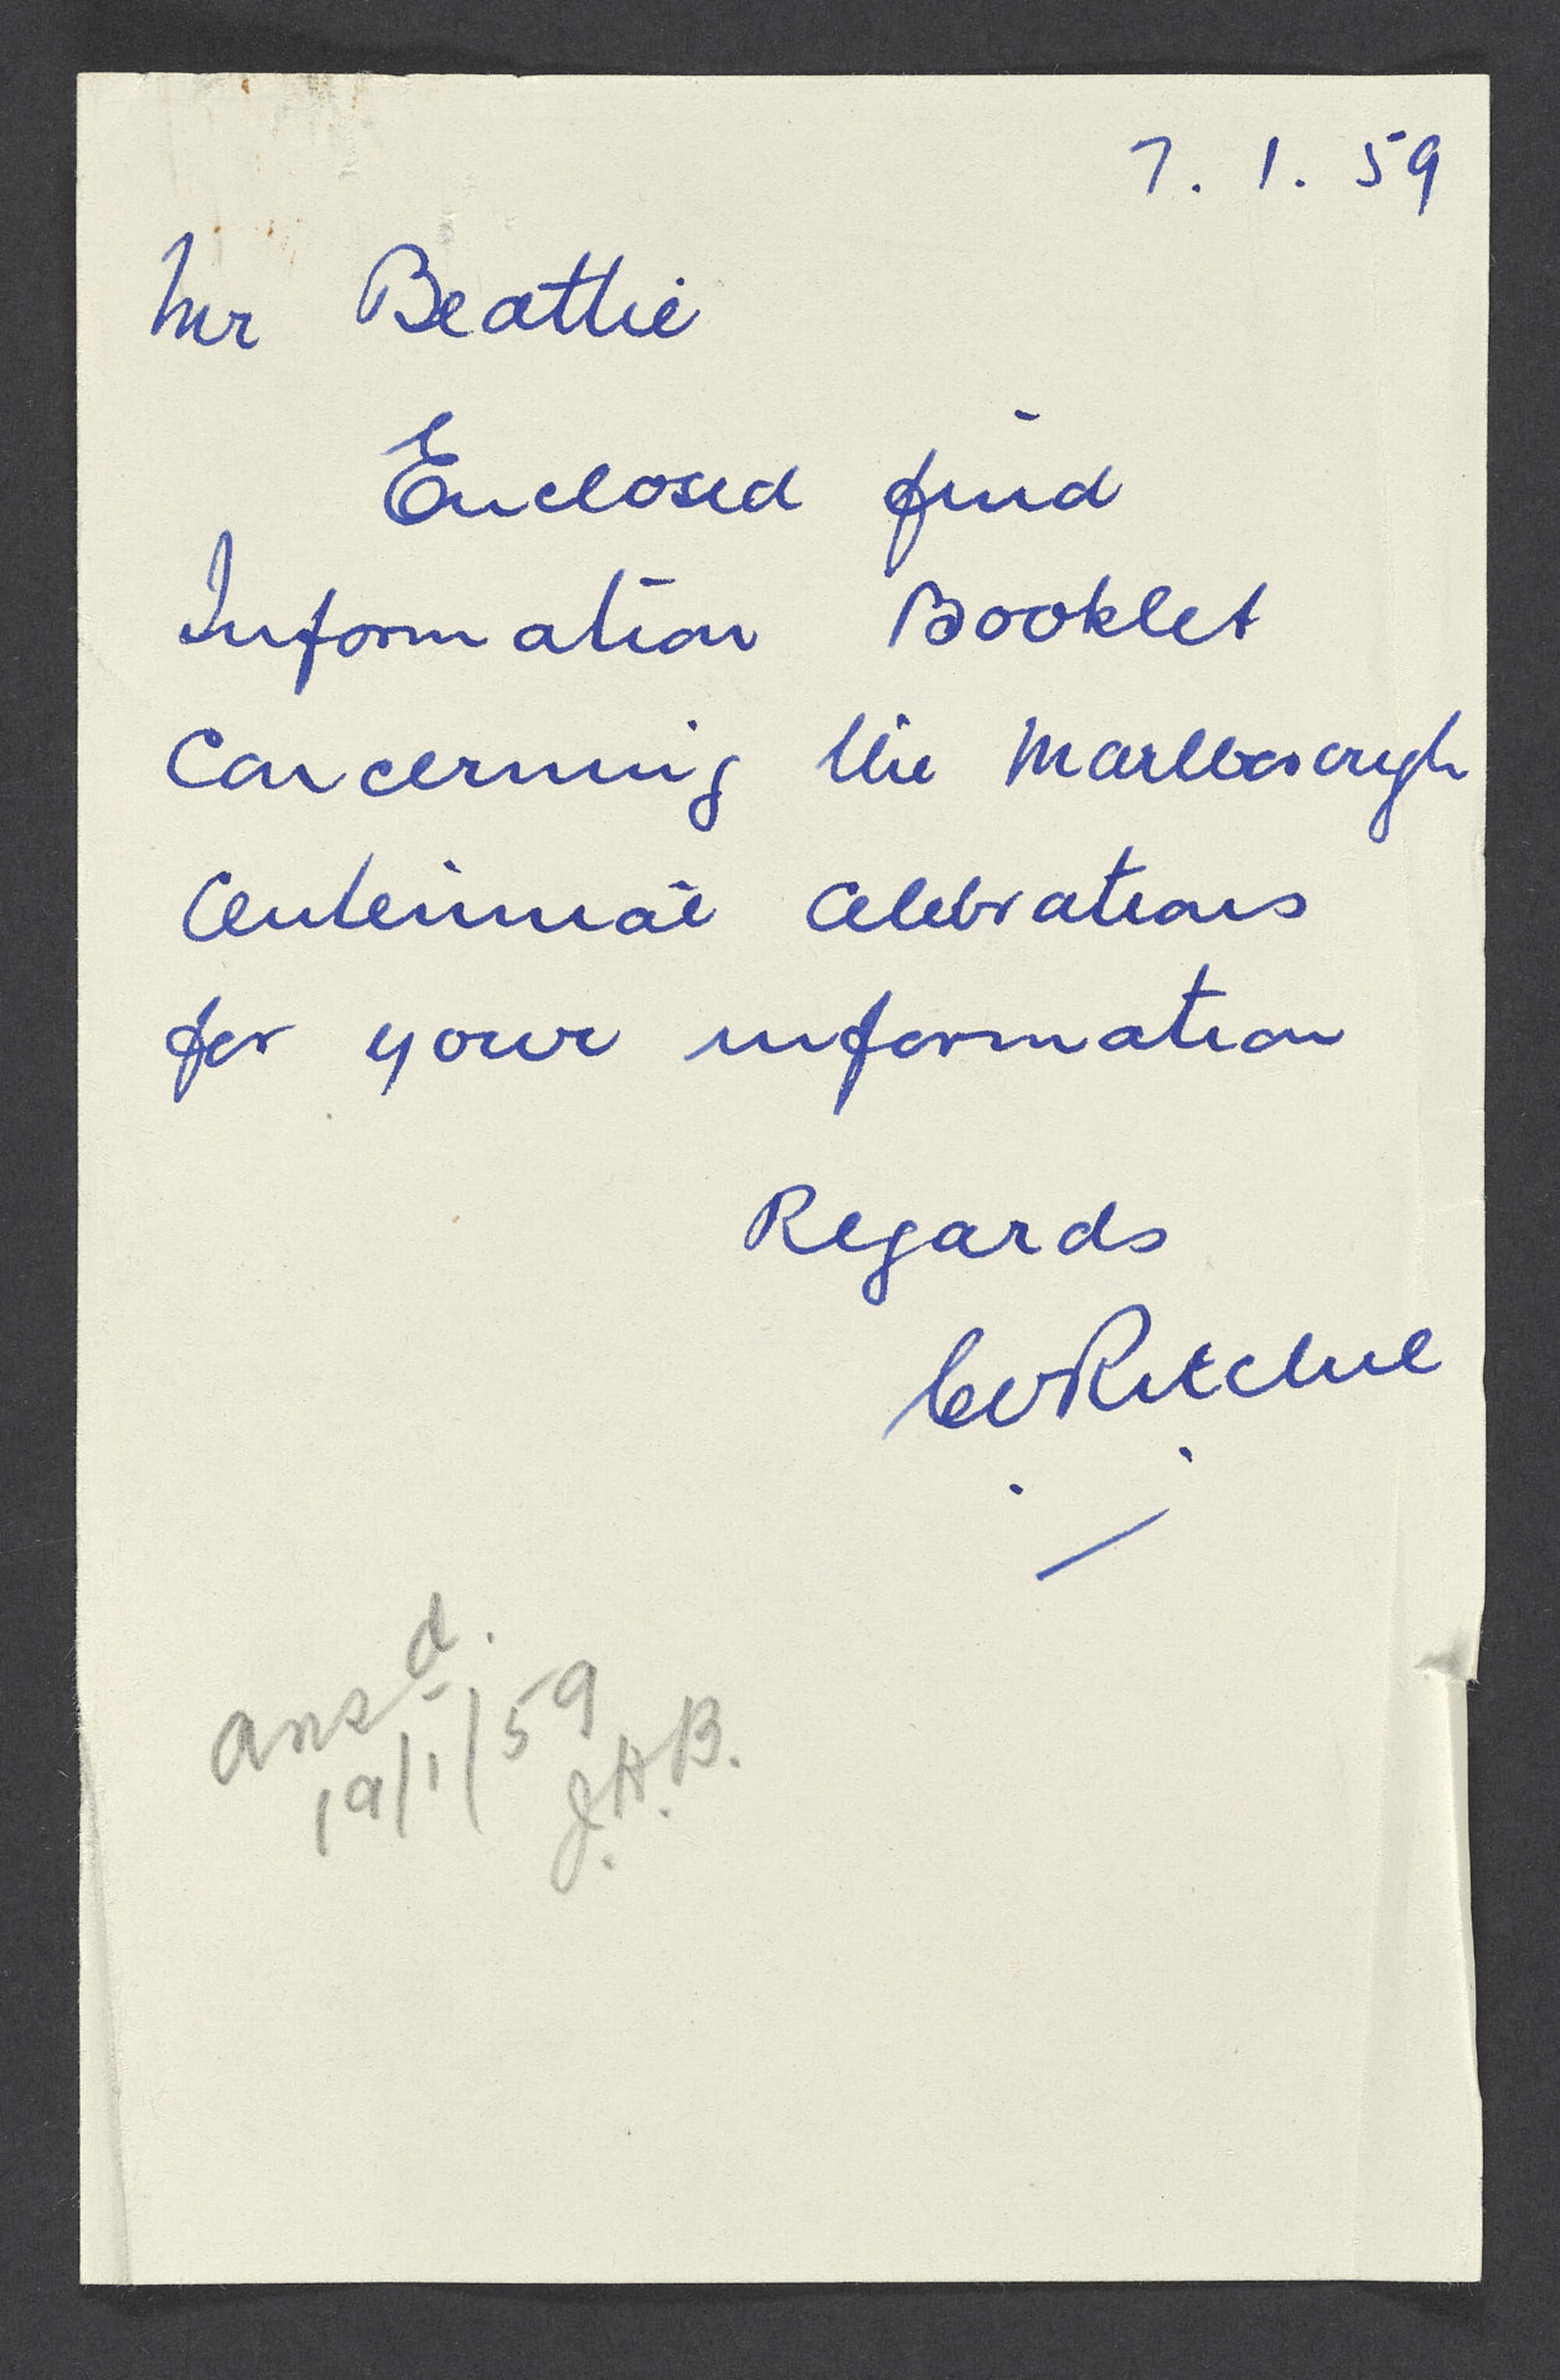 7. 1. 59
Mr Beattie
Enclosed find
Information Booklet
Concerning the Marlborough
Centennial Celebrations
for your information
Regards
CW Ritchie
ansd.
19/1/59
J.H.B.